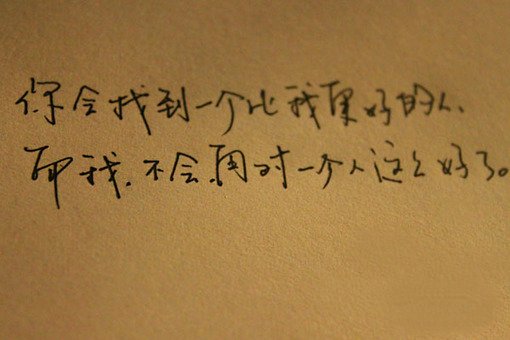 你会找到一个比我更好的人.
而我.不会.再对一个人这么好了。